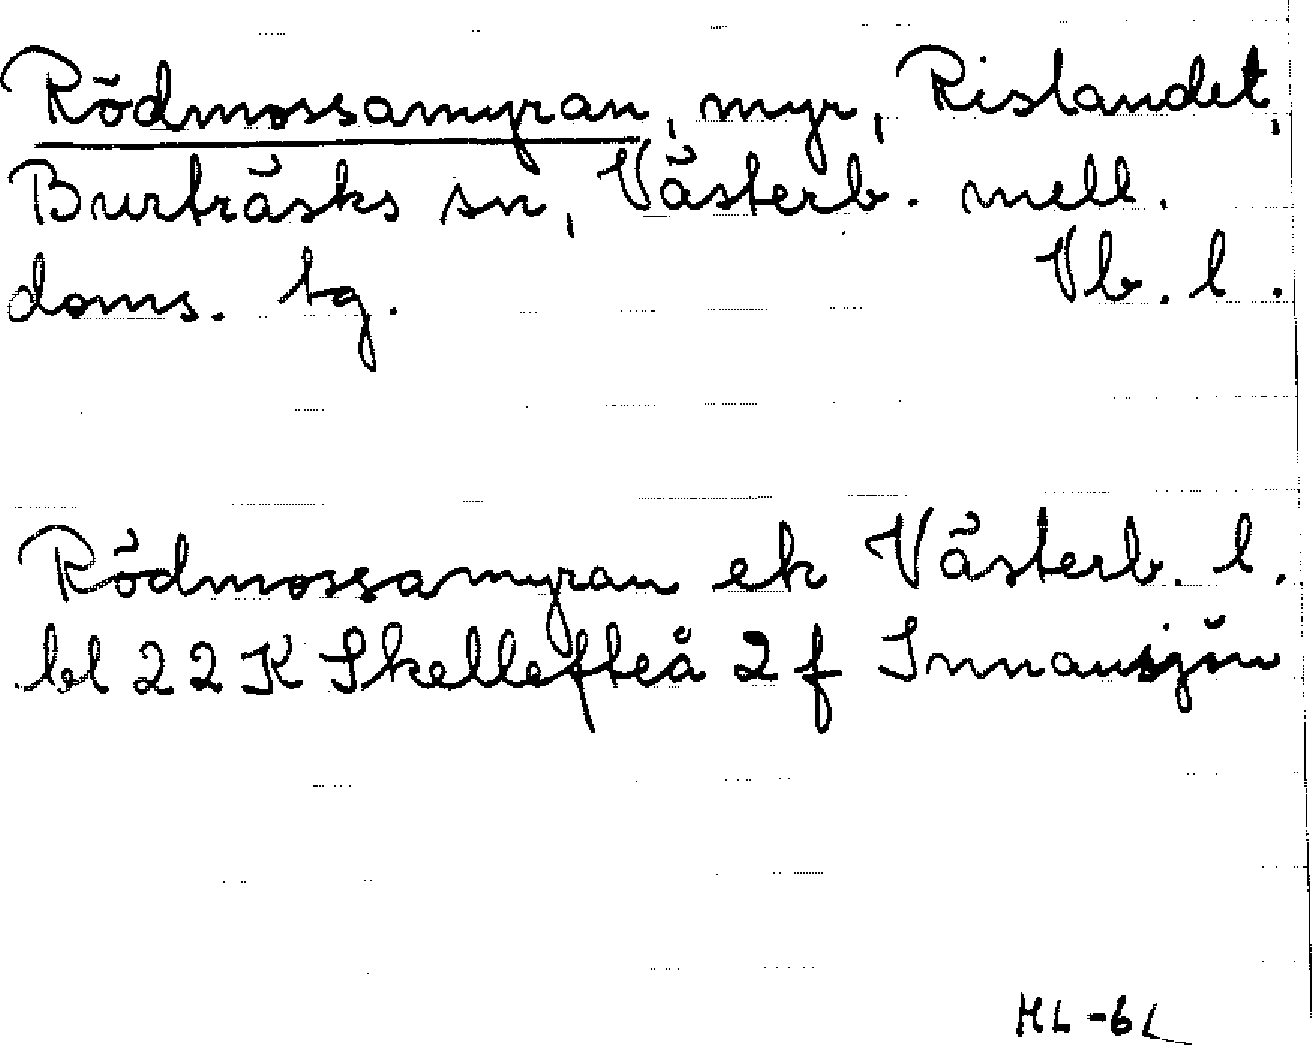 Rödmossamyran, myr, Rislandet,
Burträsks sn, Västerb. mell.
doms. tg. Vb. l.
Rödmossamyran ek Västerb. l.
bl 22 K Skellefteå 2 f Innansjön